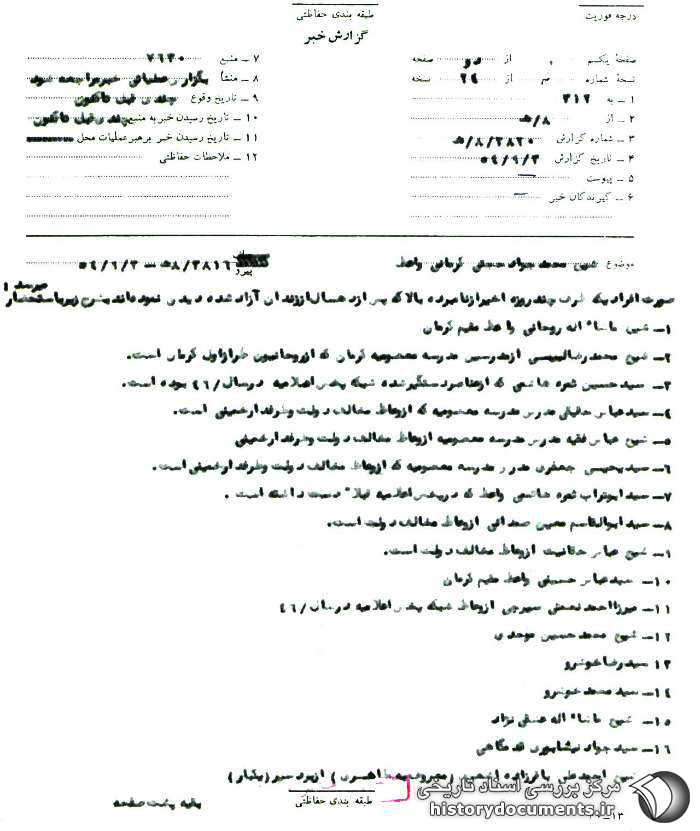 طبقه بندی حفاظتی
درجه فوریت
گزارش خبر
صفحهٔ یکم از دو صفحه
نسخهٔ شماره از ۲۴ نسخه
۱ – به ۳۱۲
۲ – از ۸/ﻫ
۳ – شماره گزارش ۸/۳۸۲۰/ﻫ
۴ – تاریخ گزارش ۵۴/۹/۳
۵ – پیوست
۶ – گیرندگان خبر
۷ – منبع ۷۶۳۰
۸ – منشأ
۹ – تاریخ وقوع چندی قبل تاکنون
۱۰ – تاریخ رسیدن خبر به منبع چندی قبل تاکنون
۱۱ – تاریخ رسیدن خبر برهبر عملیات محل
۱۲ – ملاحظات حفاظتی
موضوع شیخ محمد جواد حجتی کرمانی واعظ
پیرو ۸/۳۸۱۶/ﻫ – ۵۴/۹/۳
صورت افرادیکه ظرف چند روزه اخیر از نامبرده بالا که پس از ده سال از زندان آزاد شده دیدن نموده‌اند بشرح زیر باستحضار میرسد :
۱– شیخ ماشاء اله روحانی واعظ مقیم کرمان
۲– شیخ محمدرضا از مدرسین مدرسه معصومیه کرمان که از روحانیون طراز اول کرمان است.
۳– سید حسین ثمره هاشمی که از عناصر دستگیر شده شبکه پخش اعلامیه در سال /۴۶ بوده است.
۴– سید عباس مدرس مدرسه معصومیه که از وعاظ مخالف دولت وطرفدار خمینی است.
۵– شیخ عباس فقیه مدرس مدرسه معصومیه از وعاظ مخالف دولت وطرفدار خمینی
۶– سید یحیی جعفری مدرس مدرسه معصومیه که از وعاظ مخالف دولت وطرفدار خمینی است.
۷– سید ابوتراب ثمره هاشمی واعظ که در پخش اعلامیه قبلا" دست داشته است .
۸– سید ابوالقاسم معین از وعاظ مخالف دولت است.
۹– شیخ عباس حقانیت از وعاظ مخالف دولت است.
۱۰– سید عباس حسینی واعظ مقیم کرمان
۱۱– میرزا احمد نعمتی سیرجی از وعاظ شبکه پخش اعلامیه در سال /۴۶
۱۲– شیخ محمد حسین موحدی
۱۳ سید رضا خوشرو
۱۴– سید محمد خوشرو
۱۵– شیخ ماشاء اله نژاد
۱۶– سید جواد نیشابوری قدمگاهی
شیخ باقرزاده (معروف به طاهری)
طبقه بندی حفاظتی
بقیه پشت صفحه
مرکز بررسی اسناد تاریخی
historydocuments.ir